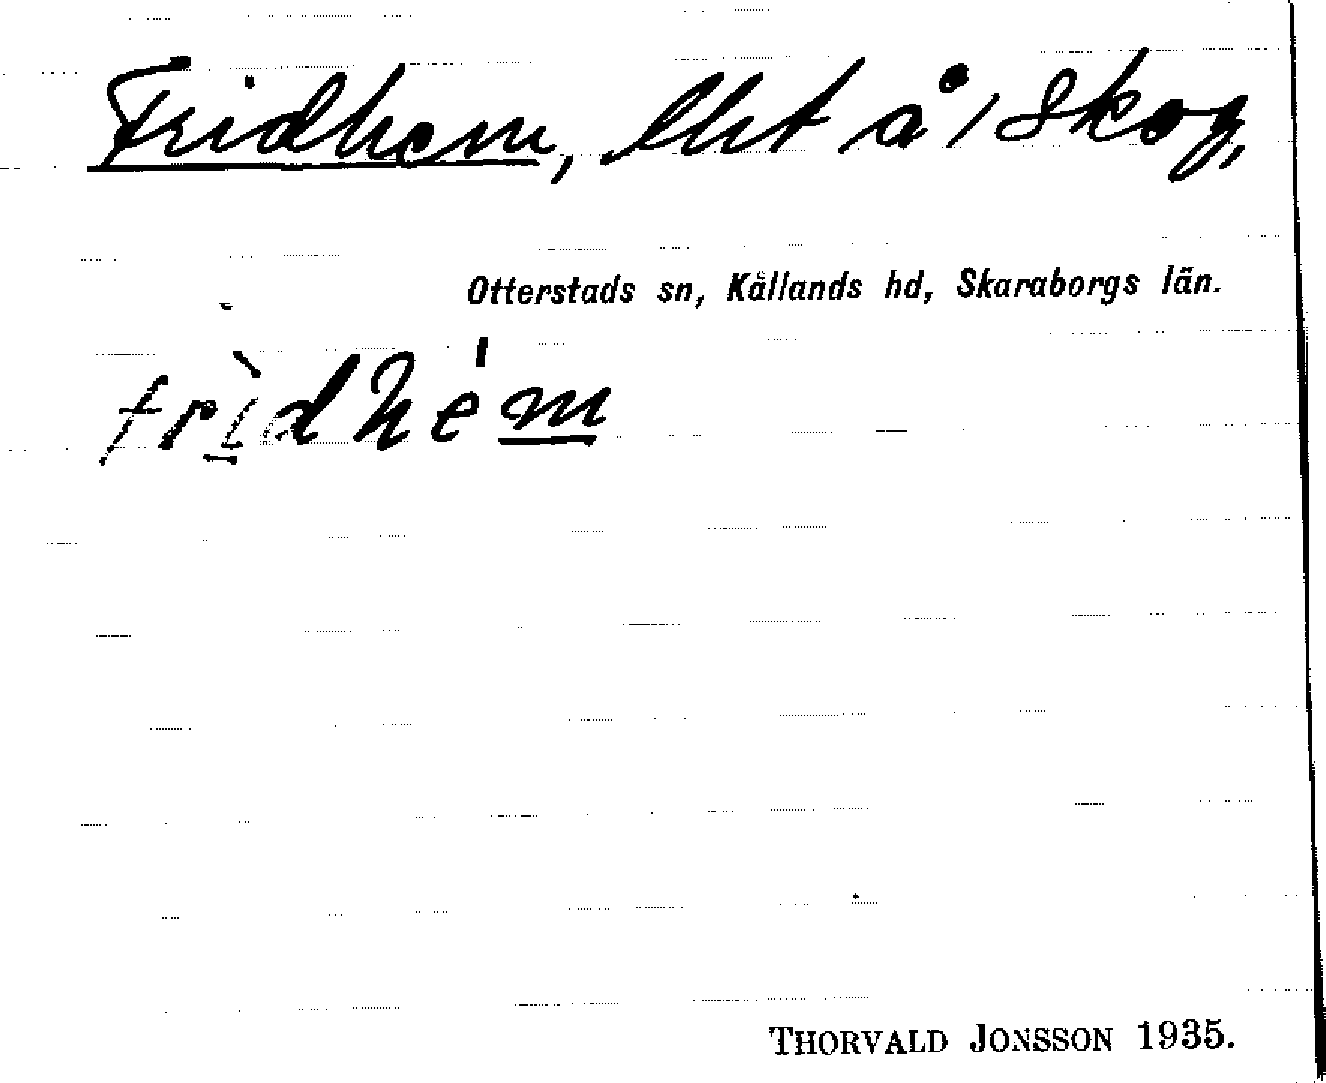 Fridhem, lht å 1 Skog,
Otterstads sn, Kållands hd, Skaraborgs län.
frì̲dhém̲
THORVALD JONSSON 1935.